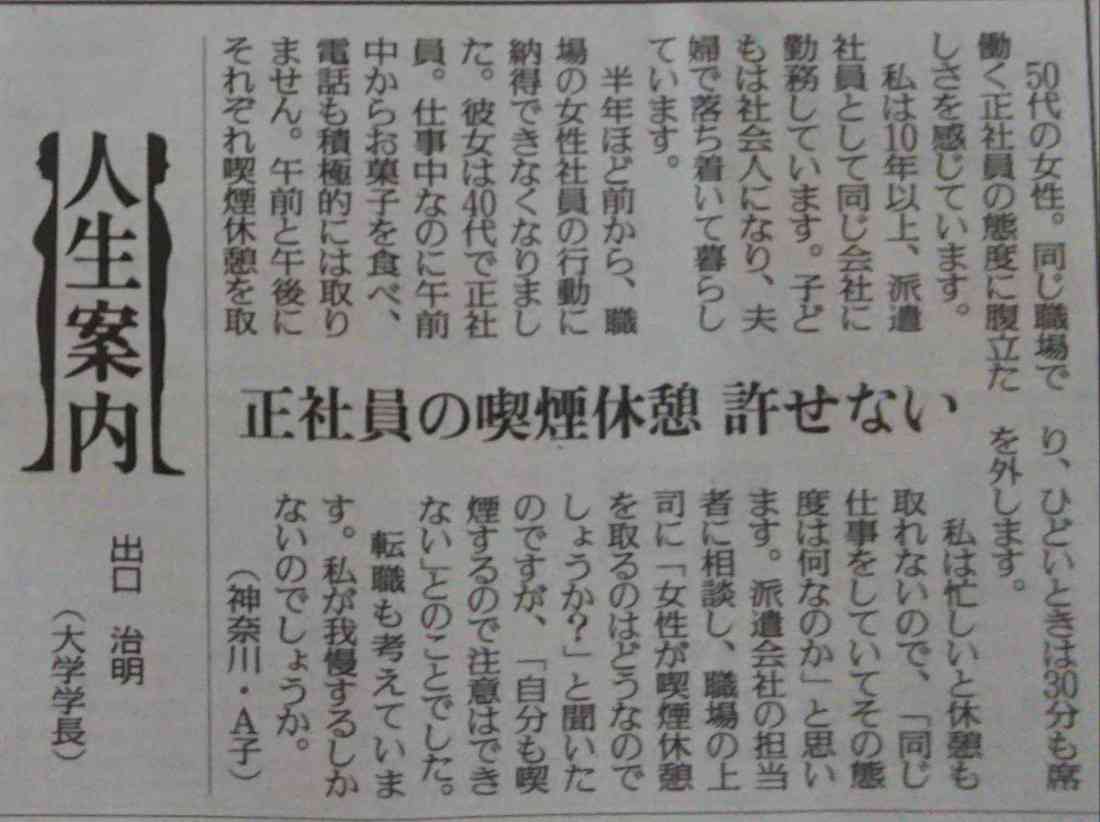 50代の女性。同じ職場で
働く正社員の態度に腹立た
しさを感じています。
私は10年以上、派遣
社員として同じ会社に
勤務しています。子ど
もは社会人になり、夫
婦で落ち着いて暮らし
ています。
半年ほど前から、職
場の女性社員の行動に
納得できなくなりまし
た。彼女は40代で正社
員。仕事中なのに午前
中からお菓子を食べ、
電話も積極的には取り
ません。午前と午後に
それぞれ喫煙休憩を取
り、ひどいときは30分も席
を外します。
私は忙しいと休憩も
取れないので、「同じ
仕事をしていてその態
度は何なのか」と思い
ます。派遣会社の担当
者に相談し、職場の上
司に「女性が喫煙休憩
を取るのはどうなので
しょうか?」と聞いた
のですが、「自分も喫
煙するので注意はでき
ない」とのことでした。
転職も考えていま
す。私が我慢するしか
ないのでしょうか。
(神奈川・A子)
正社員の喫煙休憩 許せない
人生案内
出口 治明
(大学学長)